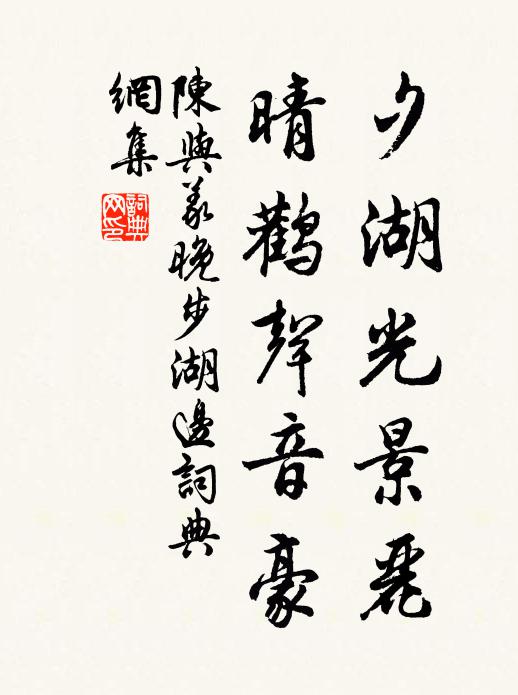 夕湖光景麗
晴鸛聲音豪
陳與義晚步湖邊詞典
網集
詞典網印